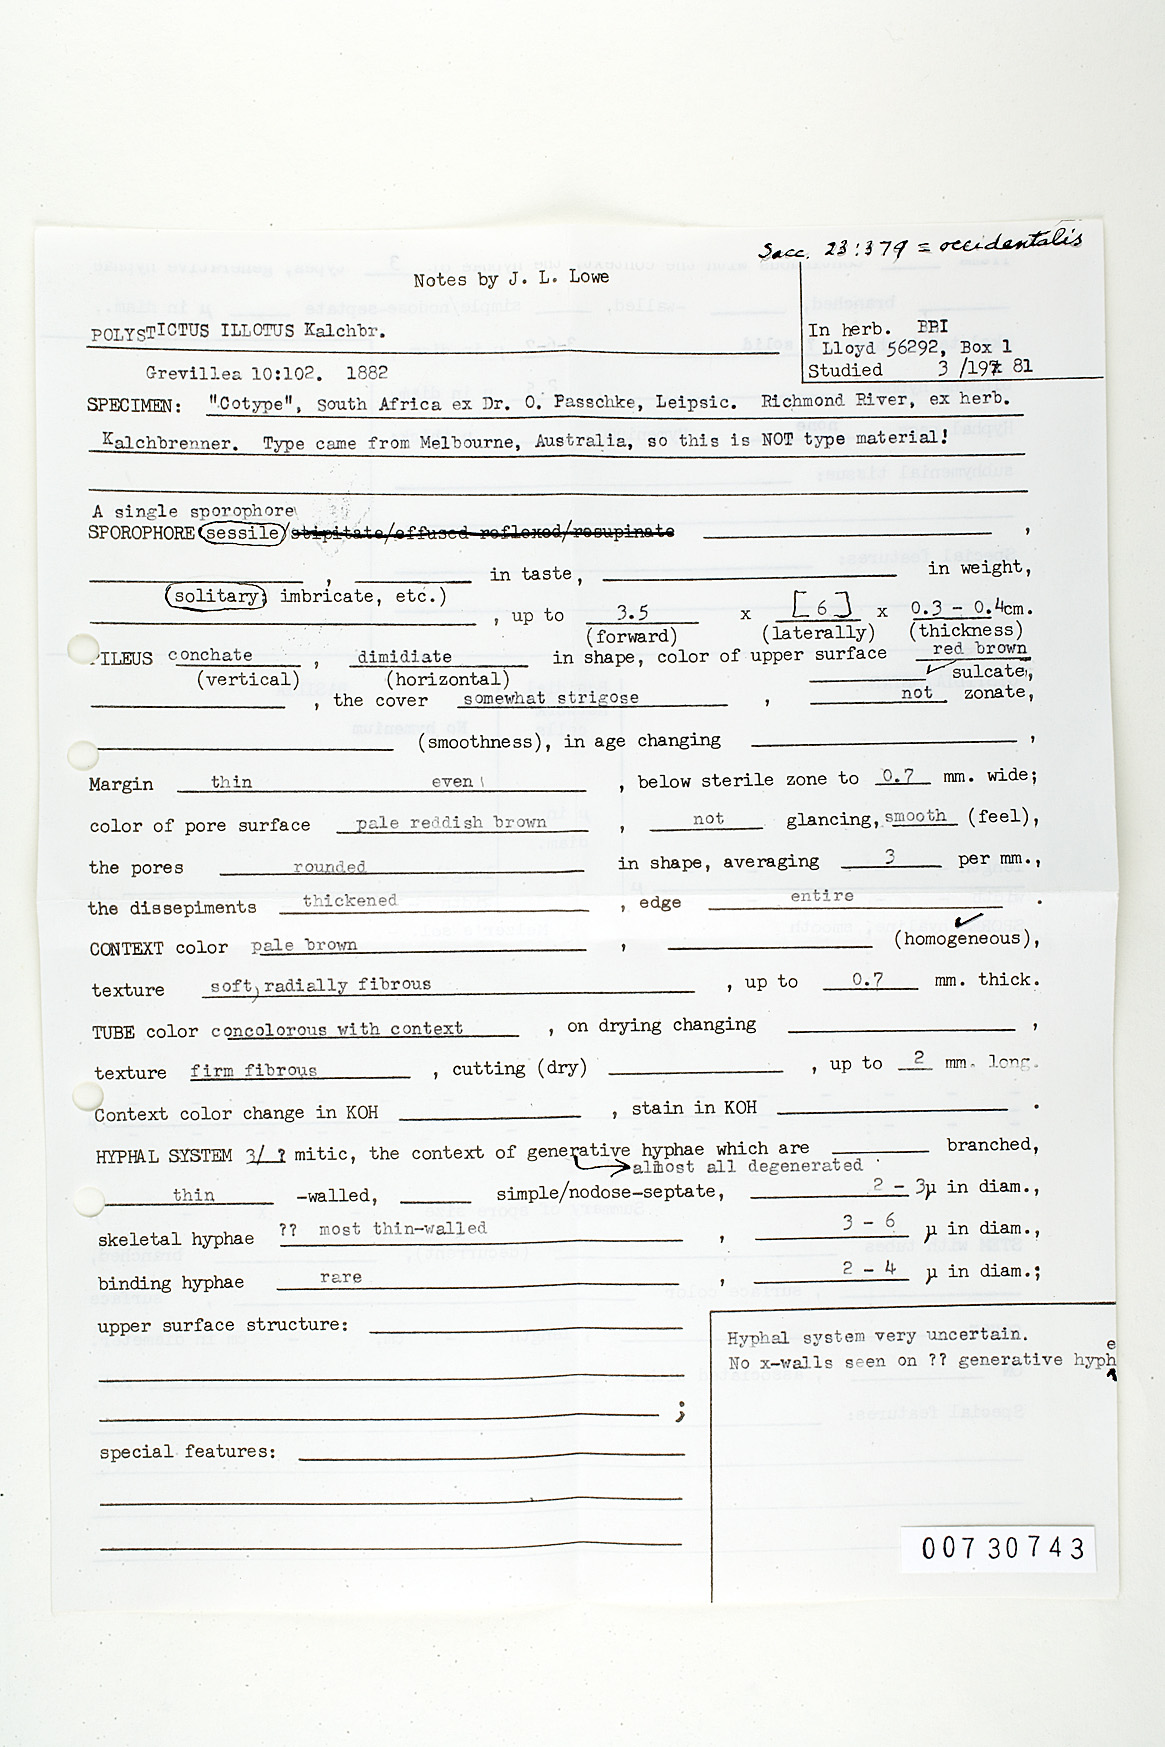 Sacc. 23:379 = occidentalis
Notes by J. L. Lowe
POLYSTICTUS ILLOTUS Kalchbr.
In herb. BPI
Lloyd 56292, Box 1
Grevillea 10:102. 1882
Studied 3 /197 81
SPECIMEN: "Cotype", South Africa ex Dr. O. Passchke, Leipsic. Richmond River, ex herb.
Kalchbrenner. Type came from Melbourne, Australia, so this is NOT type material!
A single sporophore
SPOROPHORE (sessile)/stipitate/effused-reflexed/resupinate ,
, in taste, in weight,
(solitary, imbricate, etc.)
, up to 3.5 x [6] x 0.3 - 0.4cm.
(forward) (laterally) (thickness)
PILEUS conchate , dimidiate in shape, color of upper surface red brown
(vertical) (horizontal) ✓ sulcate,
, the cover somewhat strigose , not zonate,
(smoothness), in age changing ,
Margin thin even , below sterile zone to 0.7 mm. wide;
color of pore surface pale reddish brown , not glancing, smooth (feel),
the pores rounded in shape, averaging 3 per mm.,
the dissepiments thickened , edge entire .
CONTEXT color pale brown , (homogeneous), ✓
texture soft, radially fibrous , up to 0.7 mm. thick.
TUBE color concolorous with context , on drying changing ,
texture firm fibrous , cutting (dry) , up to 2 mm. long.
Context color change in KOH , stain in KOH .
HYPHAL SYSTEM 3/ ? mitic, the context of generative hyphae which are branched,
almost all degenerated
thin -walled, simple/nodose-septate, 2 - 3µ in diam.,
skeletal hyphae ?? most thin-walled , 3 - 6 µ in diam.,
binding hyphae rare , 2 - 4 µ in diam.;
upper surface structure:
Hyphal system very uncertain.
No x-walls seen on ?? generative hyph e
;
special features:
00730743